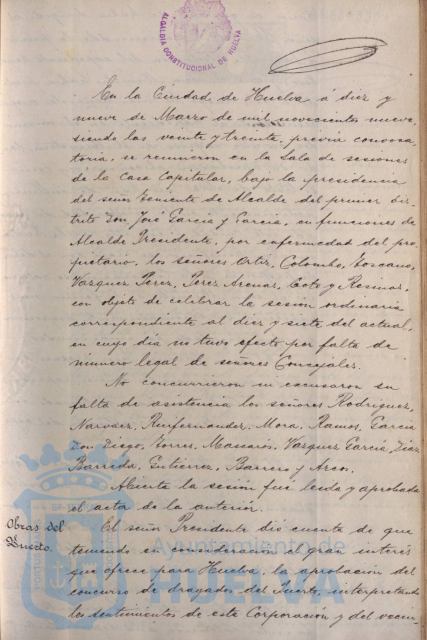 ALCALDIA CONSTITUCIONAL DE HUELVA
En la Ciudad de Huelva á diez y
nueve de Marzo de mil novecientos nueve,
siendo las veinte y treinta, previa convoca
toria, se reunieron en la Sala de sesiones
de la Casa Capitular, bajo la presidencia
del señor Teniente de Alcalde del primer dis
trito Don José García y García, en funciones de
Alcalde Presidente, por enfermedad del pro
pietario, los señores Ortiz, Colombo, Toscano,
Vazquez Perez, Perez Arenas, Coto y
con objeto de celebrar la sesión ordinaria
correspondiente al diez y siete del actual,
en cuyo día no tuvo efecto por falta de
número legal de señores Concejales.
No concurrieron ni excusaron su
falta de asistencia los señores Rodriguez,
Narvaez, Mora, Ramos, García
Don Diego, Torres, Mascarós, Vazquez García, Diaz
Barreda, Gutierrez, Barrero y
Abierta la sesión fué leida y aprobada
el acta de la anterior.
Obras del
Puerto.
El señor Presidente dió cuenta de que
teniendo en consideración el gran interés
que ofrece para Huelva, la aprobación del
concurso de dragados del Puerto, interpretando
los sentimientos de esta Corporación y del vecin
Ayuntamiento de
HUELVA